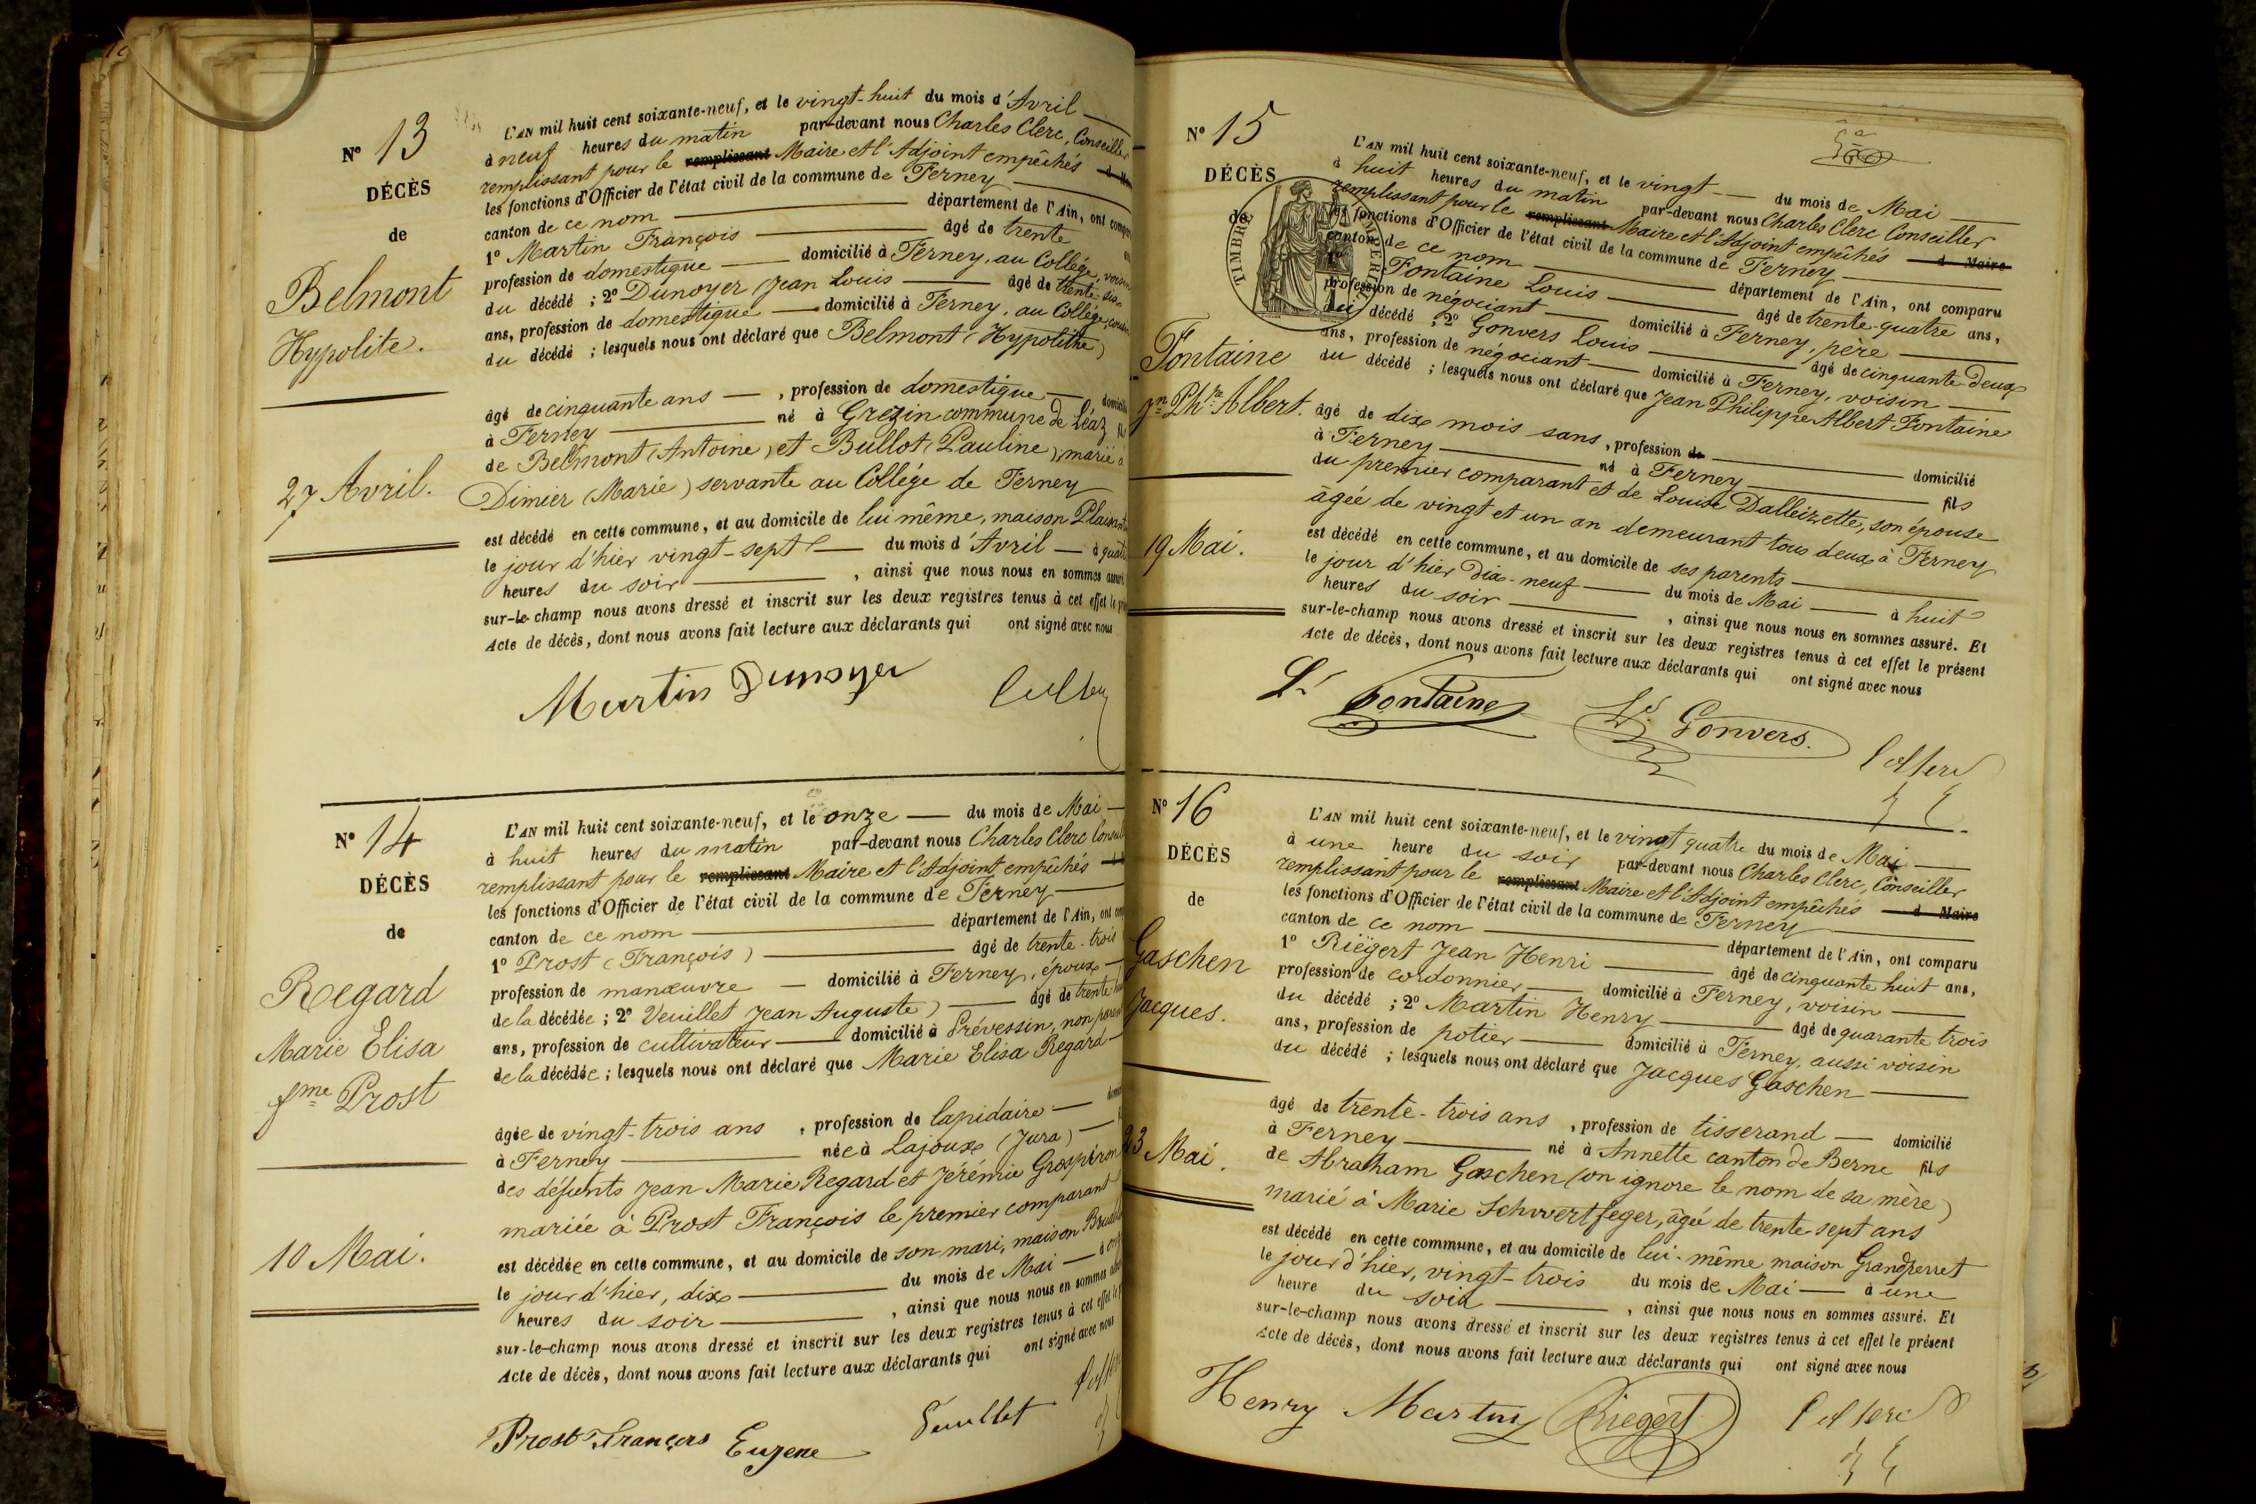 N° 13
DÉCÈS
de
Belmont
Hypolite.
27 Avril.
L'AN mil huit cent soixante-neuf, et le vingt-huit du mois d'Avril
à neuf heures du matin par-devant nous Charles Clerc, Conseiller
remplissant pour le remplissant Maire et l'Adjoint empêchés
les fonctions d'Officier de l'état civil de la commune de Ferney
canton de ce nom département de l'Ain, ont
1° Martin François âgé de trente
profession de domestique domicilié à Ferney, au Collége, voisin
du décédé ; 2° Dunoyer Jean Louis âgé de trente
ans, profession de domestique domicilié à Ferney, au Collége,
du décédé ; lesquels nous ont déclaré que Belmont (Hypolithe)
âgé de cinquante ans , profession de domestique
à Ferney né à Grezin commune de Léaz
de Belmont (Antoine) et Bullot (Pauline), marié à
Dimier (Marie) servante au Collége de Ferney
est décédé en cette commune, et au domicile de lui même, maison
le jour d'hier vingt-sept du mois d'Avril à
heures du soir , ainsi que nous nous en sommes
sur-le-champ nous avons dressé et inscrit sur les deux registres tenus à cet effet le
Acte de décès, dont nous avons fait lecture aux déclarants qui ont signé avec nous
Martin Dunoyer
N° 14
DÉCÈS
de
Regard
Marie Elisa
fme Prost
10 Mai.
L'AN mil huit cent soixante-neuf, et le onze du mois de Mai
à huit heures du matin par-devant nous Charles Clerc
remplissant pour le remplissant Maire et l'Adjoint empêchés
les fonctions d'Officier de l'état civil de la commune de Ferney
canton de ce nom département de l'Ain, ont
1° Prost (François) âgé de trente-trois
profession de manœuvre domicilié à Ferney, époux
de la décédée ; 2° Veuillet Jean Auguste) âgé de trente
ans, profession de cultivateur domicilié à Prévessin, non
de la décédée ; lesquels nous ont déclaré que Marie Elisa Regard
âgée de vingt-trois ans , profession de lapidaire
à Ferney née à Lajoux (Jura)
des défunts Jean Marie Regard et Jérémie Grospiron
mariée à Prost François le premier comparant
est décédée en cette commune, et au domicile de son mari, maison
le jour d'hier, dix du mois de Mai à
heures du soir , ainsi que nous nous en sommes
sur-le-champ nous avons dressé et inscrit sur les deux registres tenus à cet effet
Acte de décès, dont nous avons fait lecture aux déclarants qui ont signé avec nous
Prost François Eugene
N° 15
DÉCÈS
de
TIMBRE IMPERIAL
Fontaine
Jn Phpe Albert.
19 Mai.
L'AN mil huit cent soixante-neuf, et le vingt du mois de Mai
à huit heures du matin par-devant nous Charles Clerc Conseiller
remplissant pour le remplissant Maire et l'Adjoint empêchés d Maire
les fonctions d'Officier de l'état civil de la commune de Ferney
canton de ce nom département de l'Ain, ont comparu
1° Fontaine Louis âgé de trente-quatre ans,
profession de négociant domicilié à Ferney, père
du décédé ; 2° Gonvers Louis âgé de cinquante deux
ans, profession de négociant domicilié à Ferney, voisin
du décédé ; lesquels nous ont déclaré que Jean Philippe Albert Fontaine
âgé de dix mois sans , profession de domicilié
à Ferney né à Ferney fils
du premier comparant et de Louise Dalleizette, son épouse
âgée de vingt et un an demeurant tous deux à Ferney
est décédé en cette commune, et au domicile de ses parents
le jour d'hier Dix-neuf du mois de Mai à huit
heures du soir , ainsi que nous nous en sommes assuré. Et
sur-le-champ nous avons dressé et inscrit sur les deux registres tenus à cet effet le présent
Acte de décès, dont nous avons fait lecture aux déclarants qui ont signé avec nous
Ls Fontaine Ls Gonvers.
N° 16
DÉCÈS
de
Gaschen
Jacques.
23 Mai.
L'AN mil huit cent soixante-neuf, et le vingt quatre du mois de Mai
à une heure du soir par-devant nous Charles Clerc, Conseiller
remplissant pour le remplissant Maire et l'Adjoint empêchés d Maire
les fonctions d'Officier de l'état civil de la commune de Ferney
canton de ce nom département de l'Ain, ont comparu
1° Riëgert Jean Henri âgé de cinquante huit ans,
profession de cordonnier domicilié à Ferney, voisin
du décédé ; 2° Martin Henry âgé de quarante trois
ans, profession de potier domicilié à Ferney, aussi voisin
du décédé ; lesquels nous ont déclaré que Jacques Gaschen
âgé de trente-trois ans , profession de tisserand domicilié
à Ferney né à Annette canton de Berne fils
de Abraham Gaschen (on ignore le nom de sa mère)
marié à Marie Schwertfeger, âgée de trente sept ans
est décédé en cette commune, et au domicile de lui-même maison Grandperret
le jour d'hier, vingt-trois du mois de Mai à une
heure du soir , ainsi que nous nous en sommes assuré. Et
sur-le-champ nous avons dressé et inscrit sur les deux registres tenus à cet effet le présent
Acte de décès, dont nous avons fait lecture aux déclarants qui ont signé avec nous
Henry Martin Riegert